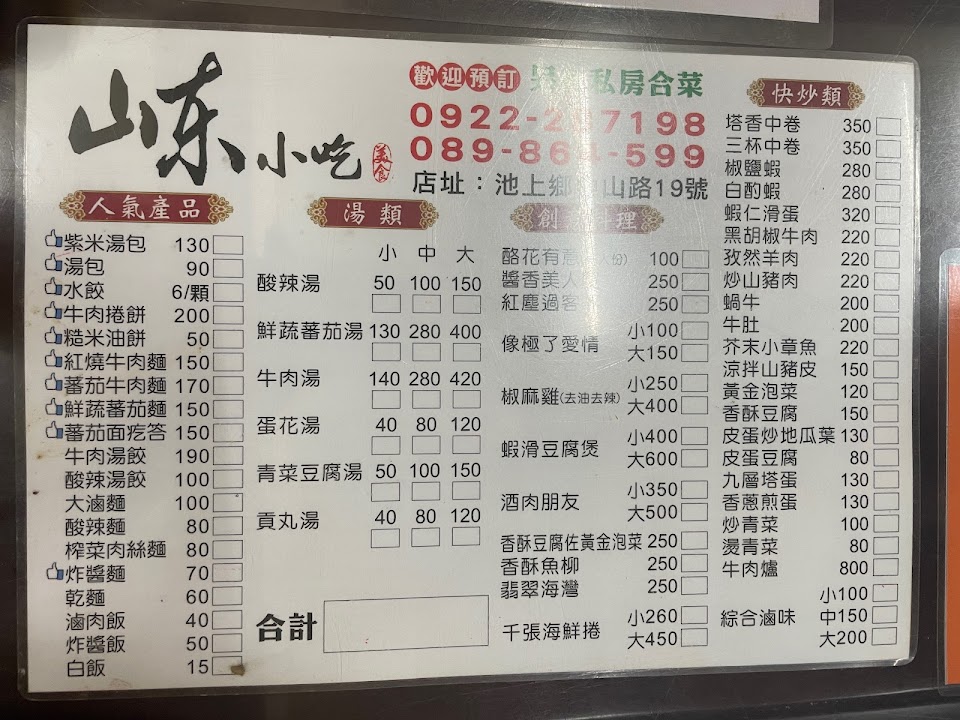 山东小吃
美食
歡迎預訂 私房合菜
0922-2 7198
089-864-599
店址：池上鄉 山路19號
人氣產品
紫米湯包 130
湯包 90
水餃 6/顆
牛肉捲餅 200
糙米油餅 50
紅燒牛肉麵 150
蕃茄牛肉麵 170
鮮蔬蕃茄麵 150
蕃茄面疙答 150
牛肉湯餃 190
酸辣湯餃 100
大滷麵 100
酸辣麵 80
榨菜肉絲麵 80
炸醬麵 70
乾麵 60
滷肉飯 40
炸醬飯 50
白飯 15
湯類
小 中 大
酸辣湯 50 100 150
鮮蔬蕃茄湯 130 280 400
牛肉湯 140 280 420
蛋花湯 40 80 120
青菜豆腐湯 50 100 150
貢丸湯 40 80 120
合計
創 理
酪花有意 100
醬香美人 250
紅塵過客 250
像極了愛情 小100
大150
椒麻雞(去油去辣) 小250
大400
蝦滑豆腐煲 小400
大600
酒肉朋友 小350
大500
香酥豆腐佐黃金泡菜 250
香酥魚柳 250
翡翠海灣 250
千張海鮮捲 小260
大450
快炒類
塔香中卷 350
三杯中卷 350
椒鹽蝦 280
白酌蝦 280
蝦仁滑蛋 320
黑胡椒牛肉 220
孜然羊肉 220
炒山豬肉 220
蝸牛 200
牛肚 200
芥末小章魚 220
涼拌山豬皮 150
黃金泡菜 120
香酥豆腐 150
皮蛋炒地瓜葉 130
皮蛋豆腐 80
九層塔蛋 130
香蔥煎蛋 130
炒青菜 100
燙青菜 80
牛肉爐 800
綜合滷味 小100
中150
大200